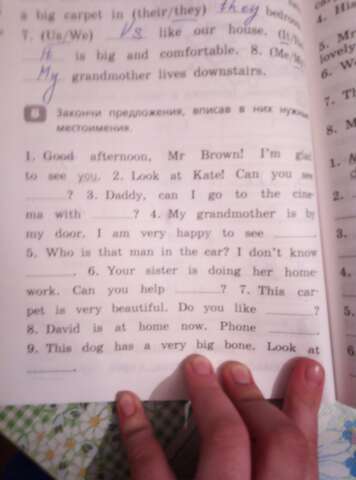 a big carpet in (their/they) they bedroom
7. (Us/We) Us like our house. (It/
It is big and comfortable. 8. (Me/My)
My grandmother lives downstairs.
6 Закончи предложения, вписав в них нужные
местоимения.
1. Good afternoon, Mr Brown! I'm glad
to see you. 2. Look at Kate! Can you see
______? 3. Daddy, can I go to the cine-
ma with ______? 4. My grandmother is by
my door. I am very happy to see ______.
5. Who is that man in the car? I don't know
______. 6. Your sister is doing her home-
work. Can you help ______? 7. This car-
pet is very beautiful. Do you like ______?
8. David is at home now. Phone ______.
9. This dog has a very big bone. Look at
______.
4. Hi
5. Mr
lovely
6. W
7. Th
8. M
1.
2.
3.
4.
5.
6.